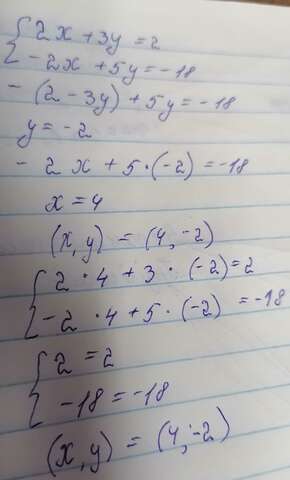 {2x + 3y = 2
-2x + 5y = -18
- (2 - 3y) + 5y = -18
y = -2
- 2x + 5·(-2) = -18
x = 4
(x, y) = (4, -2)
{2 · 4 + 3 · (-2) = 2
-2 · 4 + 5 · (-2) = -18
{2 = 2
-18 = -18
(x, y) = (4; -2)